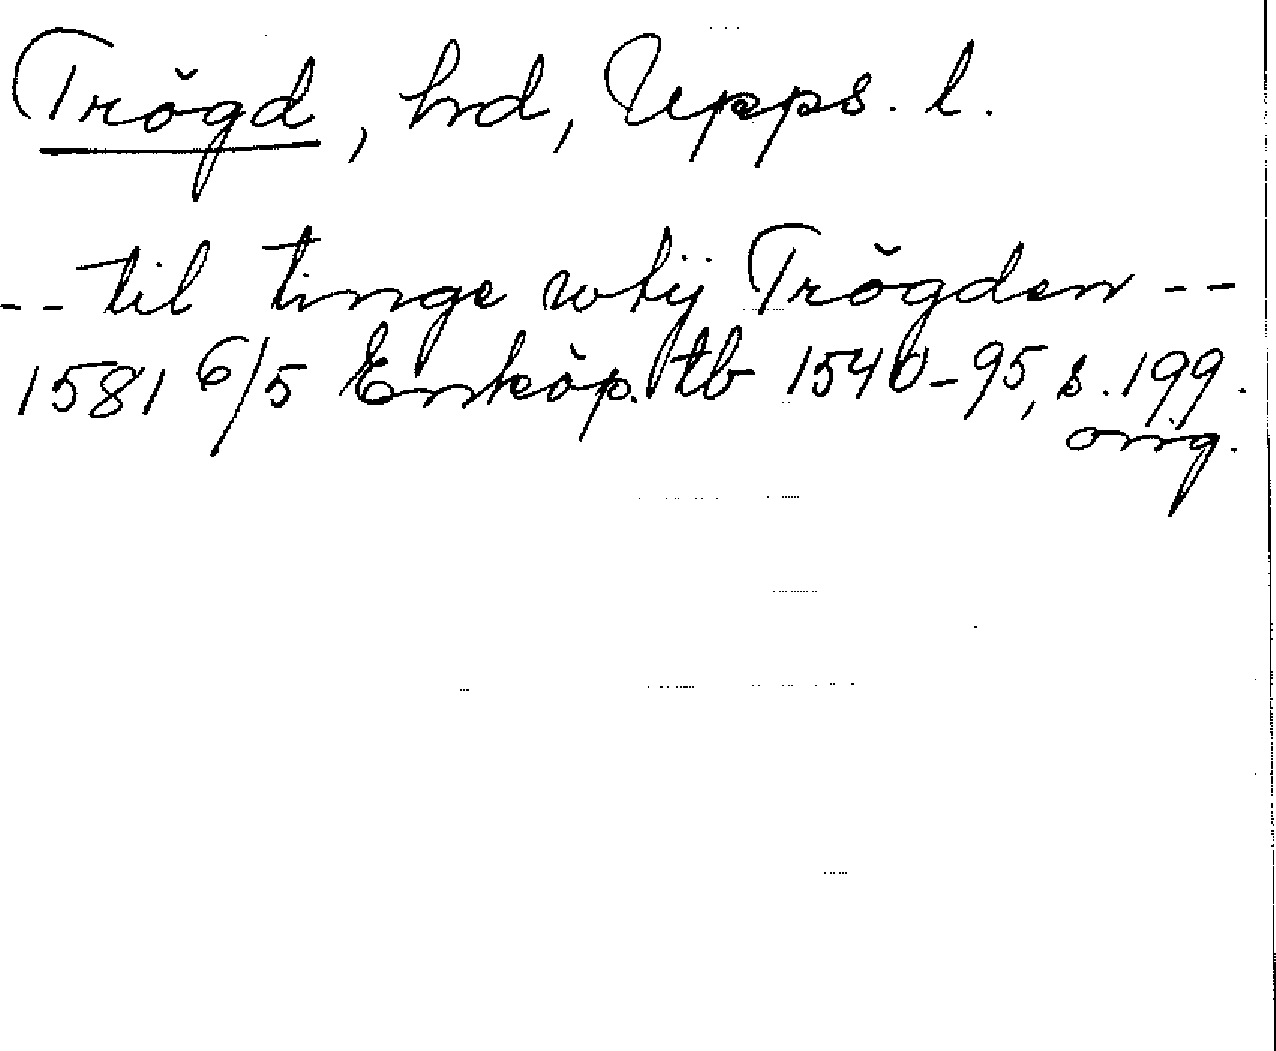 Trögd, hrd, Upps. l.
-- til tinge wtij Trögden --
1581 6/5 Enköp. tb 1540-95, s. 199.
orig.